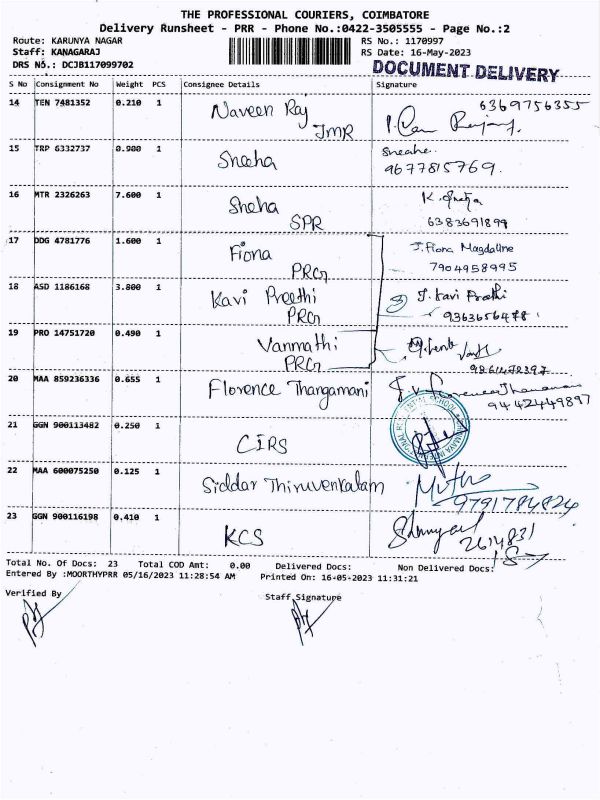 THE PROFESSIONAL COURIERS, COIMBATORE
Delivery Runsheet - PRR - Phone No.:0422-3505555 - Page No.:2
Route: KARUNYA NAGAR RS No.: 1170997
Staff: KANAGARAJ RS Date: 16-May-2023
DRS No.: DCJB117099702 DOCUMENT DELIVERY
S No Consignment No Weight PCS Consignee Details Signature
14 TEN 7481352 0.210 1 Naveen Raj 6369756355
JMR
15 TRP 6332737 0.900 1 Sneeha
9677815769.
16 MTR 2326263 7.600 1 Sheha K.
SPR 6383691899
17 DDG 4781776 1.600 1 Fiona J. Fiona Magdaline
PRG 7904958995
18 ASD 1186168 3.800 1 Kavi Preethi J. Kavi Preethi
PRG 9363656478
19 PRO 14751720 0.490 1 Vanmathi
PRG
20 MAA 859236336 0.655 1 Florence Thangamani
9442449897
21 GGN 900113482 0.250 1 CIRS
22 MAA 600075250 0.125 1 Siddar Thiruvenkatam Muthu
9791784824
23 GGN 900116198 0.410 1 KCS
2614831
Total No. Of Docs: 23 Total COD Amt: 0.00 Delivered Docs: Non Delivered Docs:
Entered By :MOORTHYPRR 05/16/2023 11:28:54 AM Printed On: 16-05-2023 11:31:21
Verified By Staff Signature